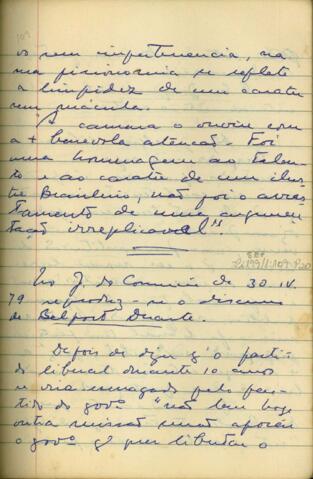 109
vo nem impertinencia, na
sua phisionomia se reflete
a limpidez de um carater
sem mácula.
A camara o ouviu com
a + benevola atenção. Foi
uma homenagem ao talen-
to e ao carater de um ilus-
tre Brasileiro, não foi o arras-
tamento de uma argumen-
tação irreplicavel".
No J. do Commercio de 30. IV.
79 reproduz-se o discurso
de Belfort Duarte.
Depois de dizer q' o parti-
do liberal durante 10 anos
se via esmagado pelo
do govº "não tem hoje
outra missão senão apoiar
o govº q' quer libertar o